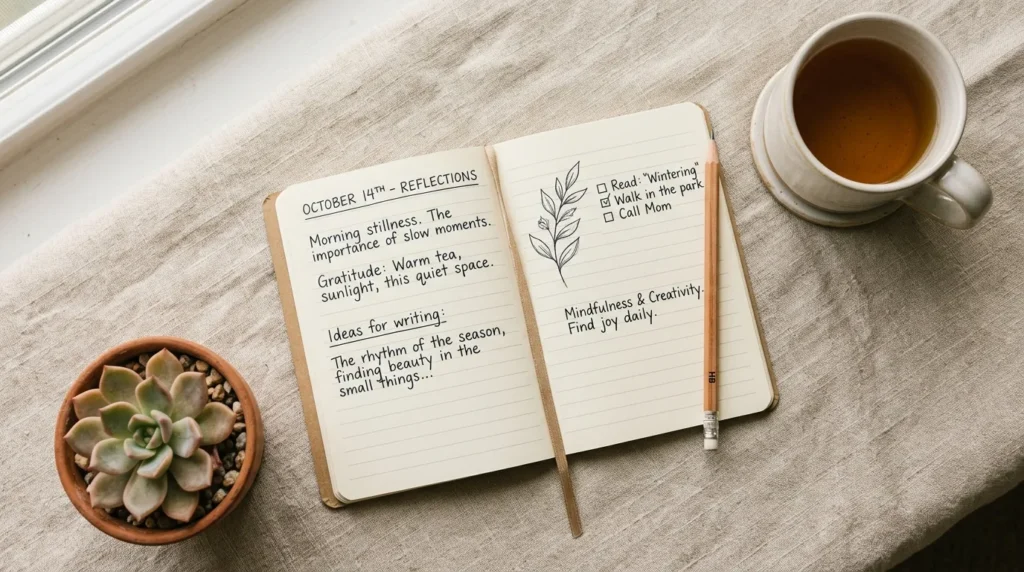 OCTOBER 14TH – REFLECTIONS
Morning stillness. The
importance of slow moments.
Gratitude: Warm tea,
sunlight, this quiet space.
Ideas for writing:
The rhythm of the season,
finding beauty in the
small things...
☐ Read: "Wintering"
☑ Walk in the park
☐ Call Mom
Mindfulness & Creativity.
Find joy daily.
HB